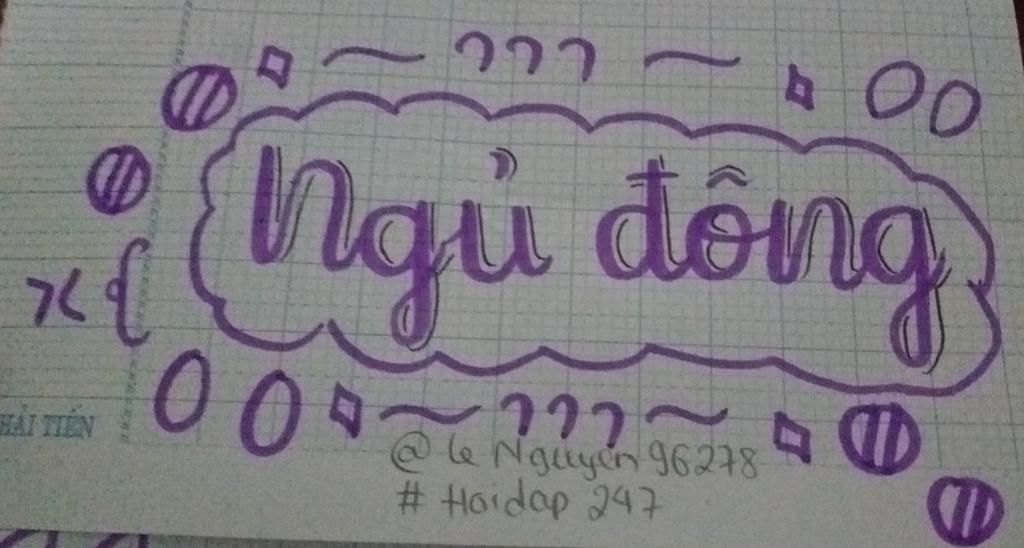 Ngủ đông
x {
HẢI TIẾN
@ Le Nguyen 96278
# Hoidap 247